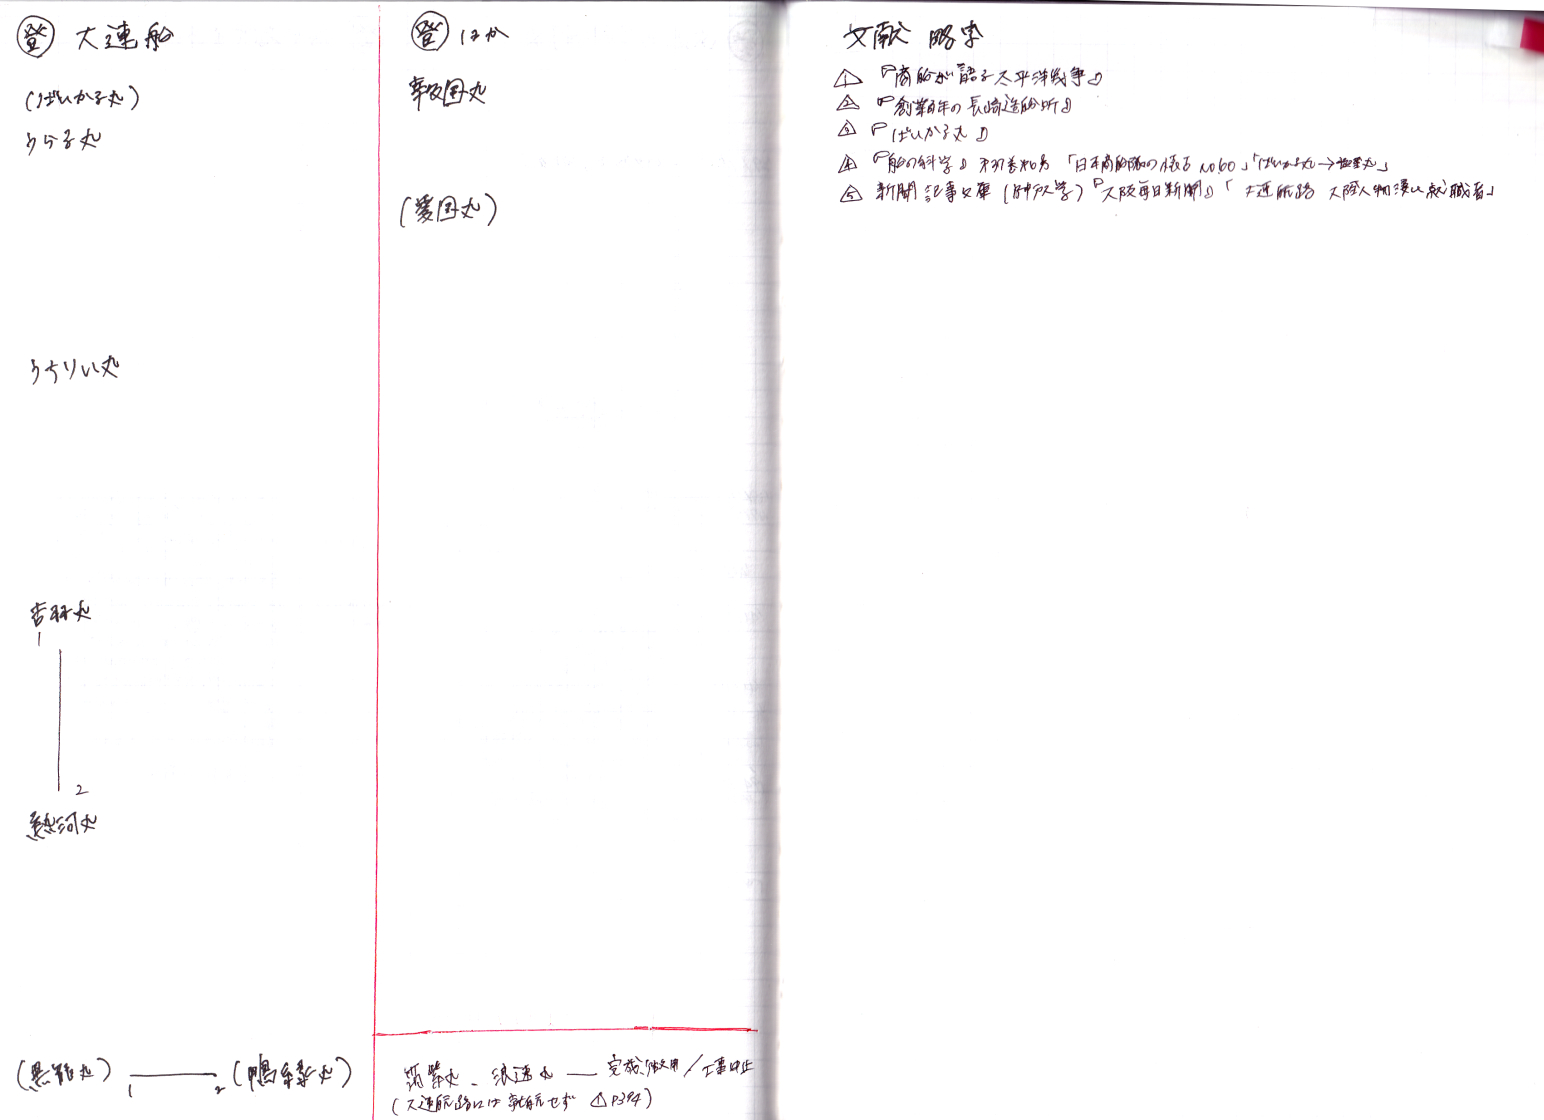 登 大連船
(ばいかる丸)
うらる丸
うすりい丸
吉林丸
1
2
熱河丸
(黒龍丸) 1 2 (鴨緑丸)
登 ほか
報国丸
(愛国丸)
筑紫丸、浪速丸 — 完成、徴用/工事中止
(大連航路には就航せず △1 P394)
文献 略字
△1 『商船が語る太平洋戦争』
△2 『創業百年の長崎造船所』
△3 『ばいかる丸』
△4 『船の科学』 「日本商船隊の懐古 No60」「ばいかる丸→
△5 新聞記事文庫 (神戸大学) 『大阪毎日新聞』「大連航路 大陸人物漫い就職者」